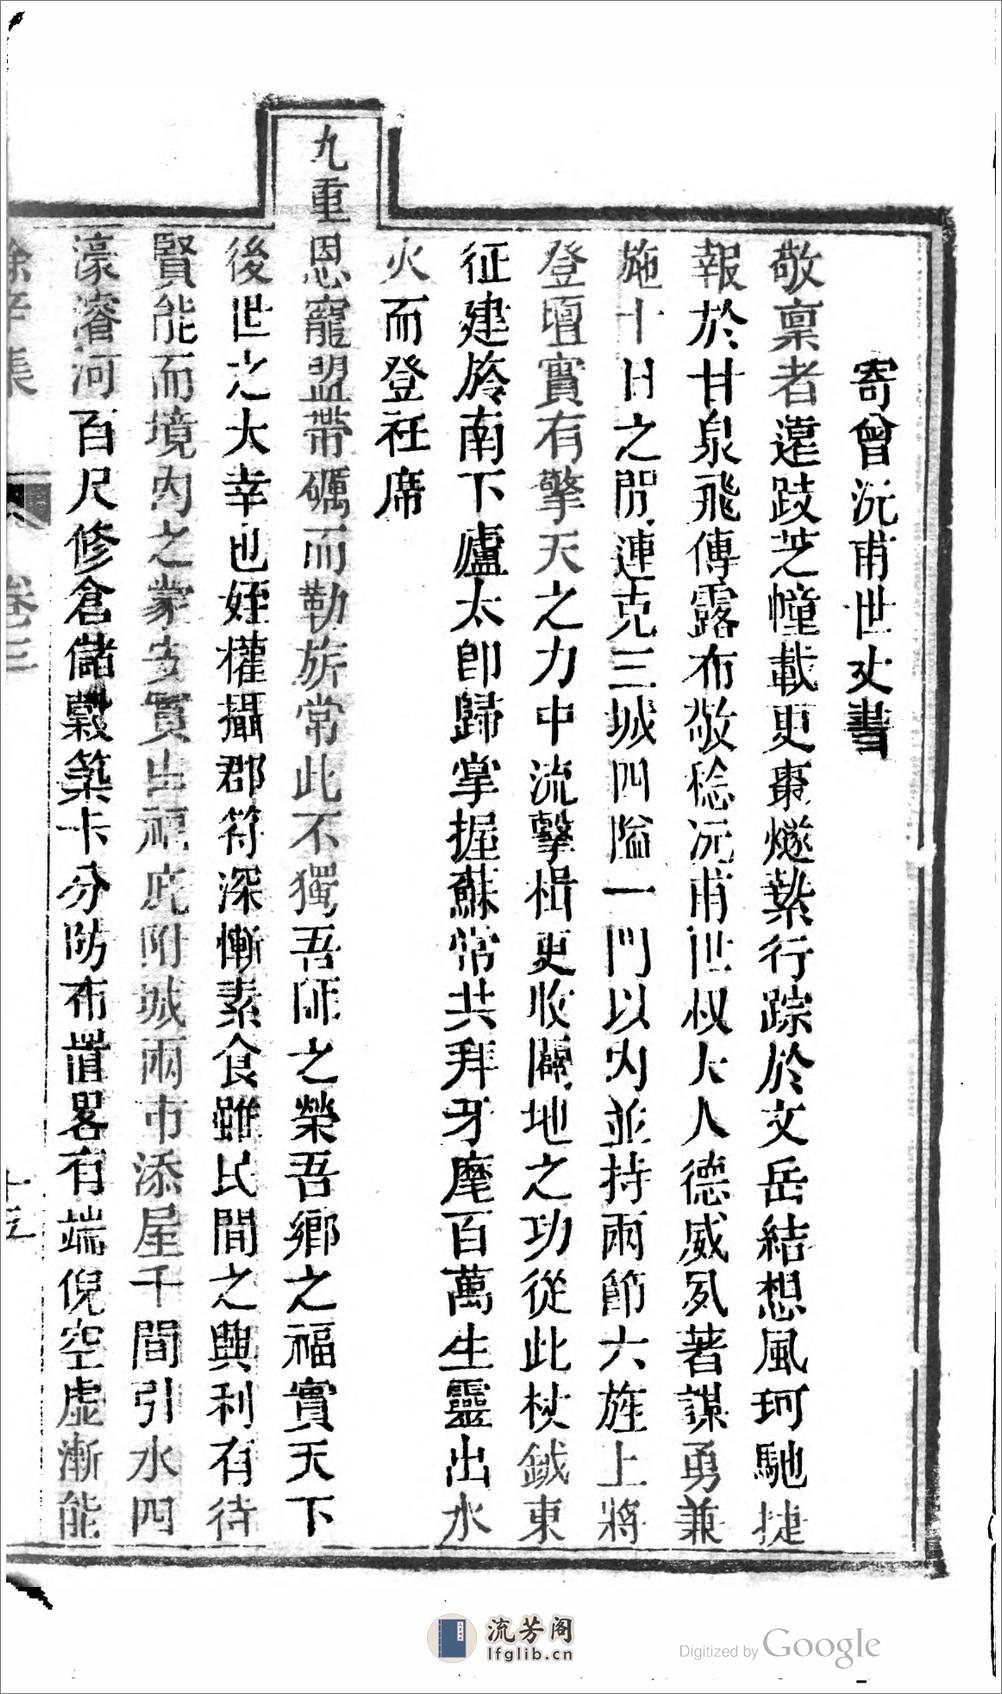 寄曾沅甫世丈書
敬稟者違跂芝幢載更棗燧縈行踪於文岳結想風珂馳捷
報於甘泉飛傳露布敬稔沅甫世叔大人德威夙著謀勇兼
施十日之閒連克三城四隘一門以內並持兩節六旌上將
登壇實有擎天之力中流擊楫更收闢地之功從此杖鉞東
征建旆南下廬太卽歸掌握蘇常共拜牙麾百萬生靈出水
火而登衽席
九重恩寵盟帶礪而勒旂常此不獨吾師之榮吾鄉之福實天下
後世之大幸也姪權攝郡符深慚素食雖民間之興利有待
賢能而境內之蒙安實出福庇附城兩市添屋千間引水四
濠濬河百尺修倉儲穀築卡分防布置畧有端倪空虛漸能
卷三
流芳阁
lfglib.cn
Digitized by Google